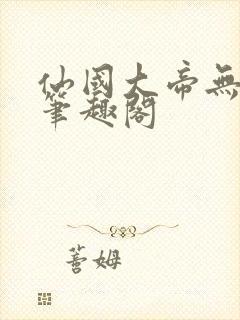 仙國大帝無
筆趣閣
薝姆